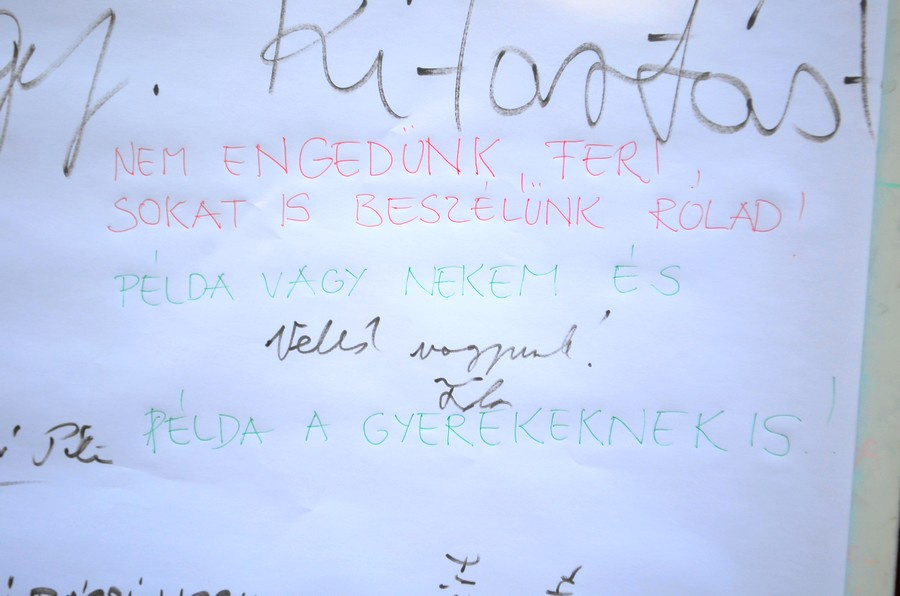 Kitartást
NEM ENGEDÜNK, FERI,
SOKAT IS BESZÉLÜNK RÓLAD!
PÉLDA VAGY NEKEM ÉS
Veled vagyunk!
PÉLDA A GYEREKEKNEK IS!